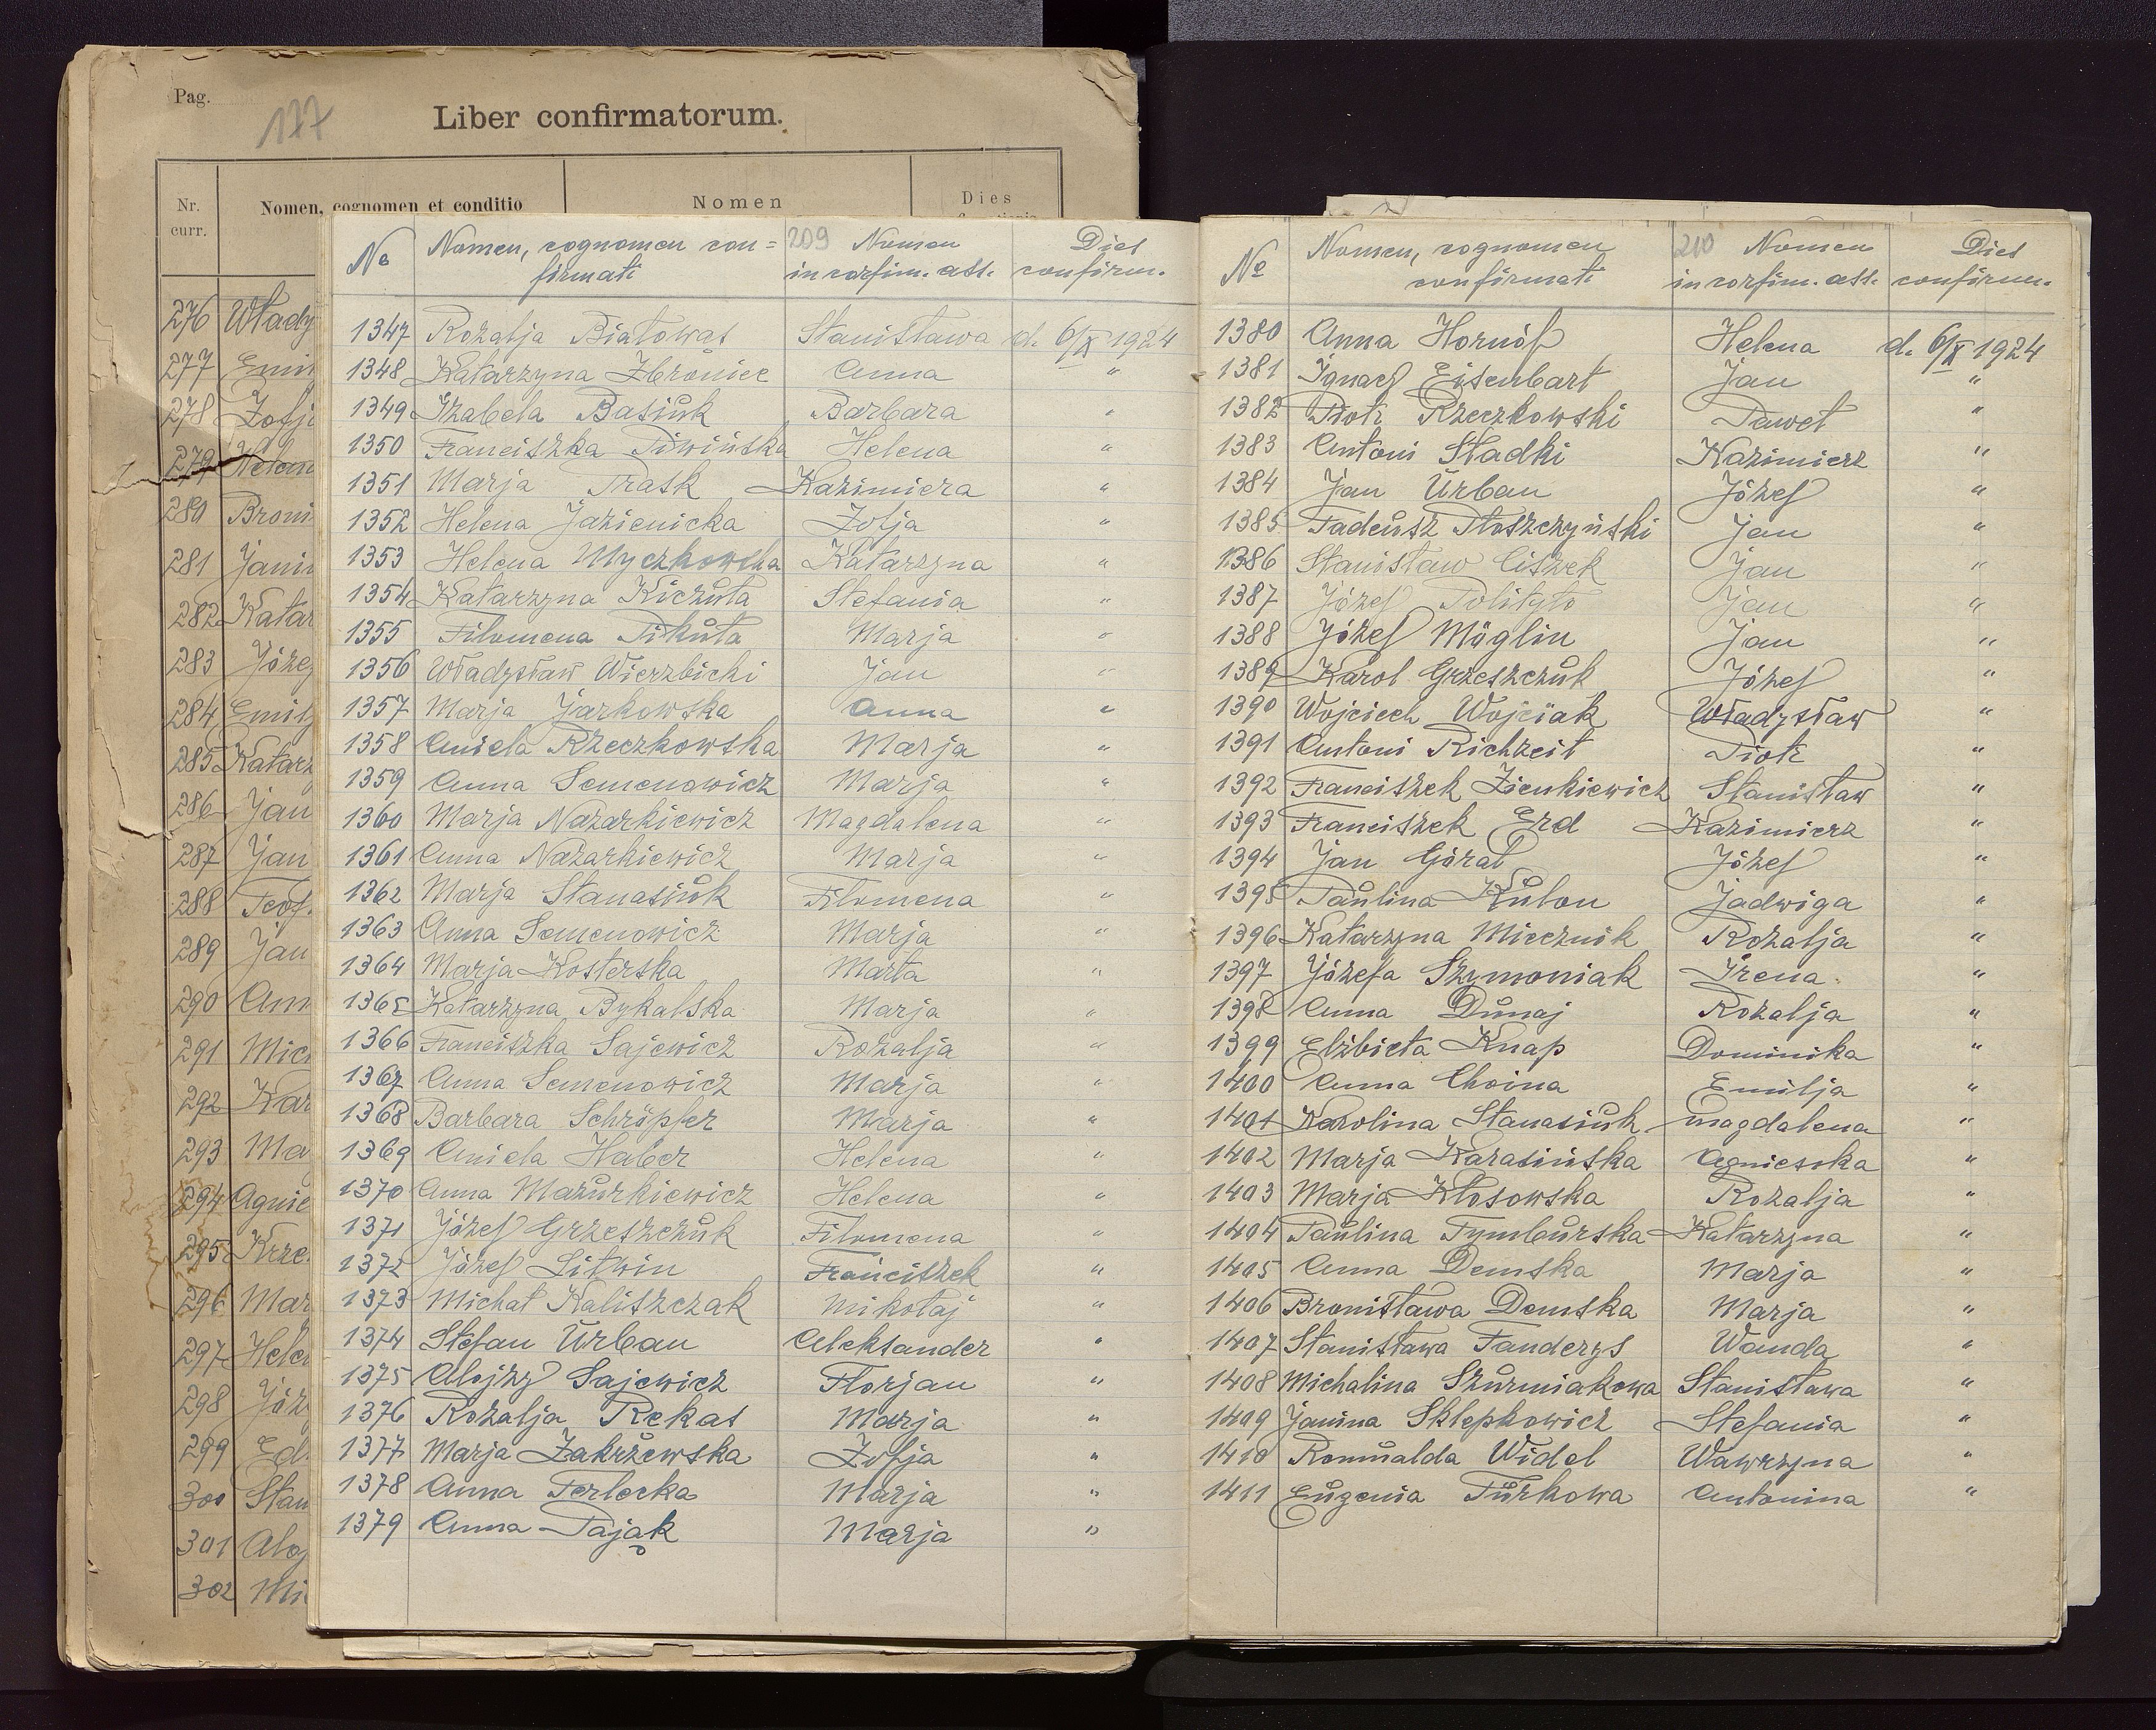 Pag.
177
Liber confirmatorum.
Nr.
curr.
Nomen, cognomen et conditio
Nomen
Dies
276 Włady
277 Emil
278 Zofj
279 Helen
280 Broni
281 Janin
282 Katar
283 Józef
284 Emil
285 Katarz
286 Jan
287 Jan
288 Teof.
289 Jan
290 Ann
291 Mich
292 Kar
293 Ma
294 Agnie
295 Krze
296 Mar
297 Helen
298 Józ
299 Ed
300 Stan
301 Aloj
302 Mi
209
№ Nomen, cognomen con= Nomen Dies
firmati in confirm. ass. confirm.
1347 Rozalja Białowąs Stanisława d. 6/IX 1924
1348 Katarzyna Zbroniec Anna "
1349 Izabela Basiuk Barbara "
1350 Franciszka Piwińska Helena "
1351 Marja Trask Kazimiera "
1352 Helena Jazienicka Zofja "
1353 Helena Myczkowska Katarzyna "
1354 Katarzyna Kiczuła Stefania "
1355 Filomena Pikuła Marja "
1356 Władysław Wierzbicki Jan "
1357 Marja Jarkowska Anna "
1358 Aniela Rzeczkowska Marja "
1359 Anna Semenowicz Marja "
1360 Marja Nazarkiewicz Magdalena "
1361 Anna Nazarkiewicz Marja "
1362 Marja Stanasiuk Filomena "
1363 Anna Semenowicz Marja "
1364 Marja Kosterska Marta "
1365 Katarzyna Bykalska Marja "
1366 Franciszka Sajewicz Rozalja "
1367 Anna Semenowicz Marja "
1368 Barbara Schröpfer Marja "
1369 Aniela Haber Helena "
1370 Anna Mazurkiewicz Helena "
1371 Józef Grzeszczuk Filomena "
1372 Józef Litwin Franciszek "
1373 Michał Kaliszczak Mikołaj "
1374 Stefan Urban Aleksander "
1375 Alojzy Sajewicz Florjan "
1376 Rozalja Rękas Marja "
1377 Marja Zakrzewska Zofja "
1378 Anna Terlecka Marja "
1379 Anna Pająk Marja "
210
№ Nomen, cognomen Nomen Dies
confirmati in confirm. ass. confirm.
1380 Anna Hornóf Helena d. 6/IX 1924
1381 Ignacy Eisenbart Jan "
1382 Piotr Rzeczkowski Paweł "
1383 Antoni Sładki Kazimierz "
1384 Jan Urban Józef "
1385 Tadeusz Płoszczyński Jan "
1386 Stanisław Ciszek Jan "
1387 Józef Polityło Jan "
1388 Józef Möglin Jan "
1389 Karol Grzeszczuk Józef "
1390 Wojciech Wojciak Władysław "
1391 Antoni Richzeit Piotr "
1392 Franciszek Zienkiewicz Stanisław "
1393 Franciszek Erd Kazimierz "
1394 Jan Góral Józef "
1395 Paulina Kulon Jadwiga "
1396 Katarzyna Miecznik Rozalja "
1397 Józefa Szymoniak Irena "
1398 Anna Dunaj Rozalja "
1399 Elżbieta Knap Dominika "
1400 Anna Choina Emilja "
1401 Karolina Stanasiuk Magdalena "
1402 Marja Karasińska Agnieszka "
1403 Marja Kłosowska Rozalja "
1404 Paulina Tymburska Katarzyna "
1405 Anna Demska Marja "
1406 Bronisława Demska Marja "
1407 Stanisława Fanderys Wanda "
1408 Michalina Szurmiakowa Stanisława "
1409 Janina Sklepkowicz Stefania "
1410 Romualda Widel Wawrzyna "
1411 Eugenia Turkowa Antonina "